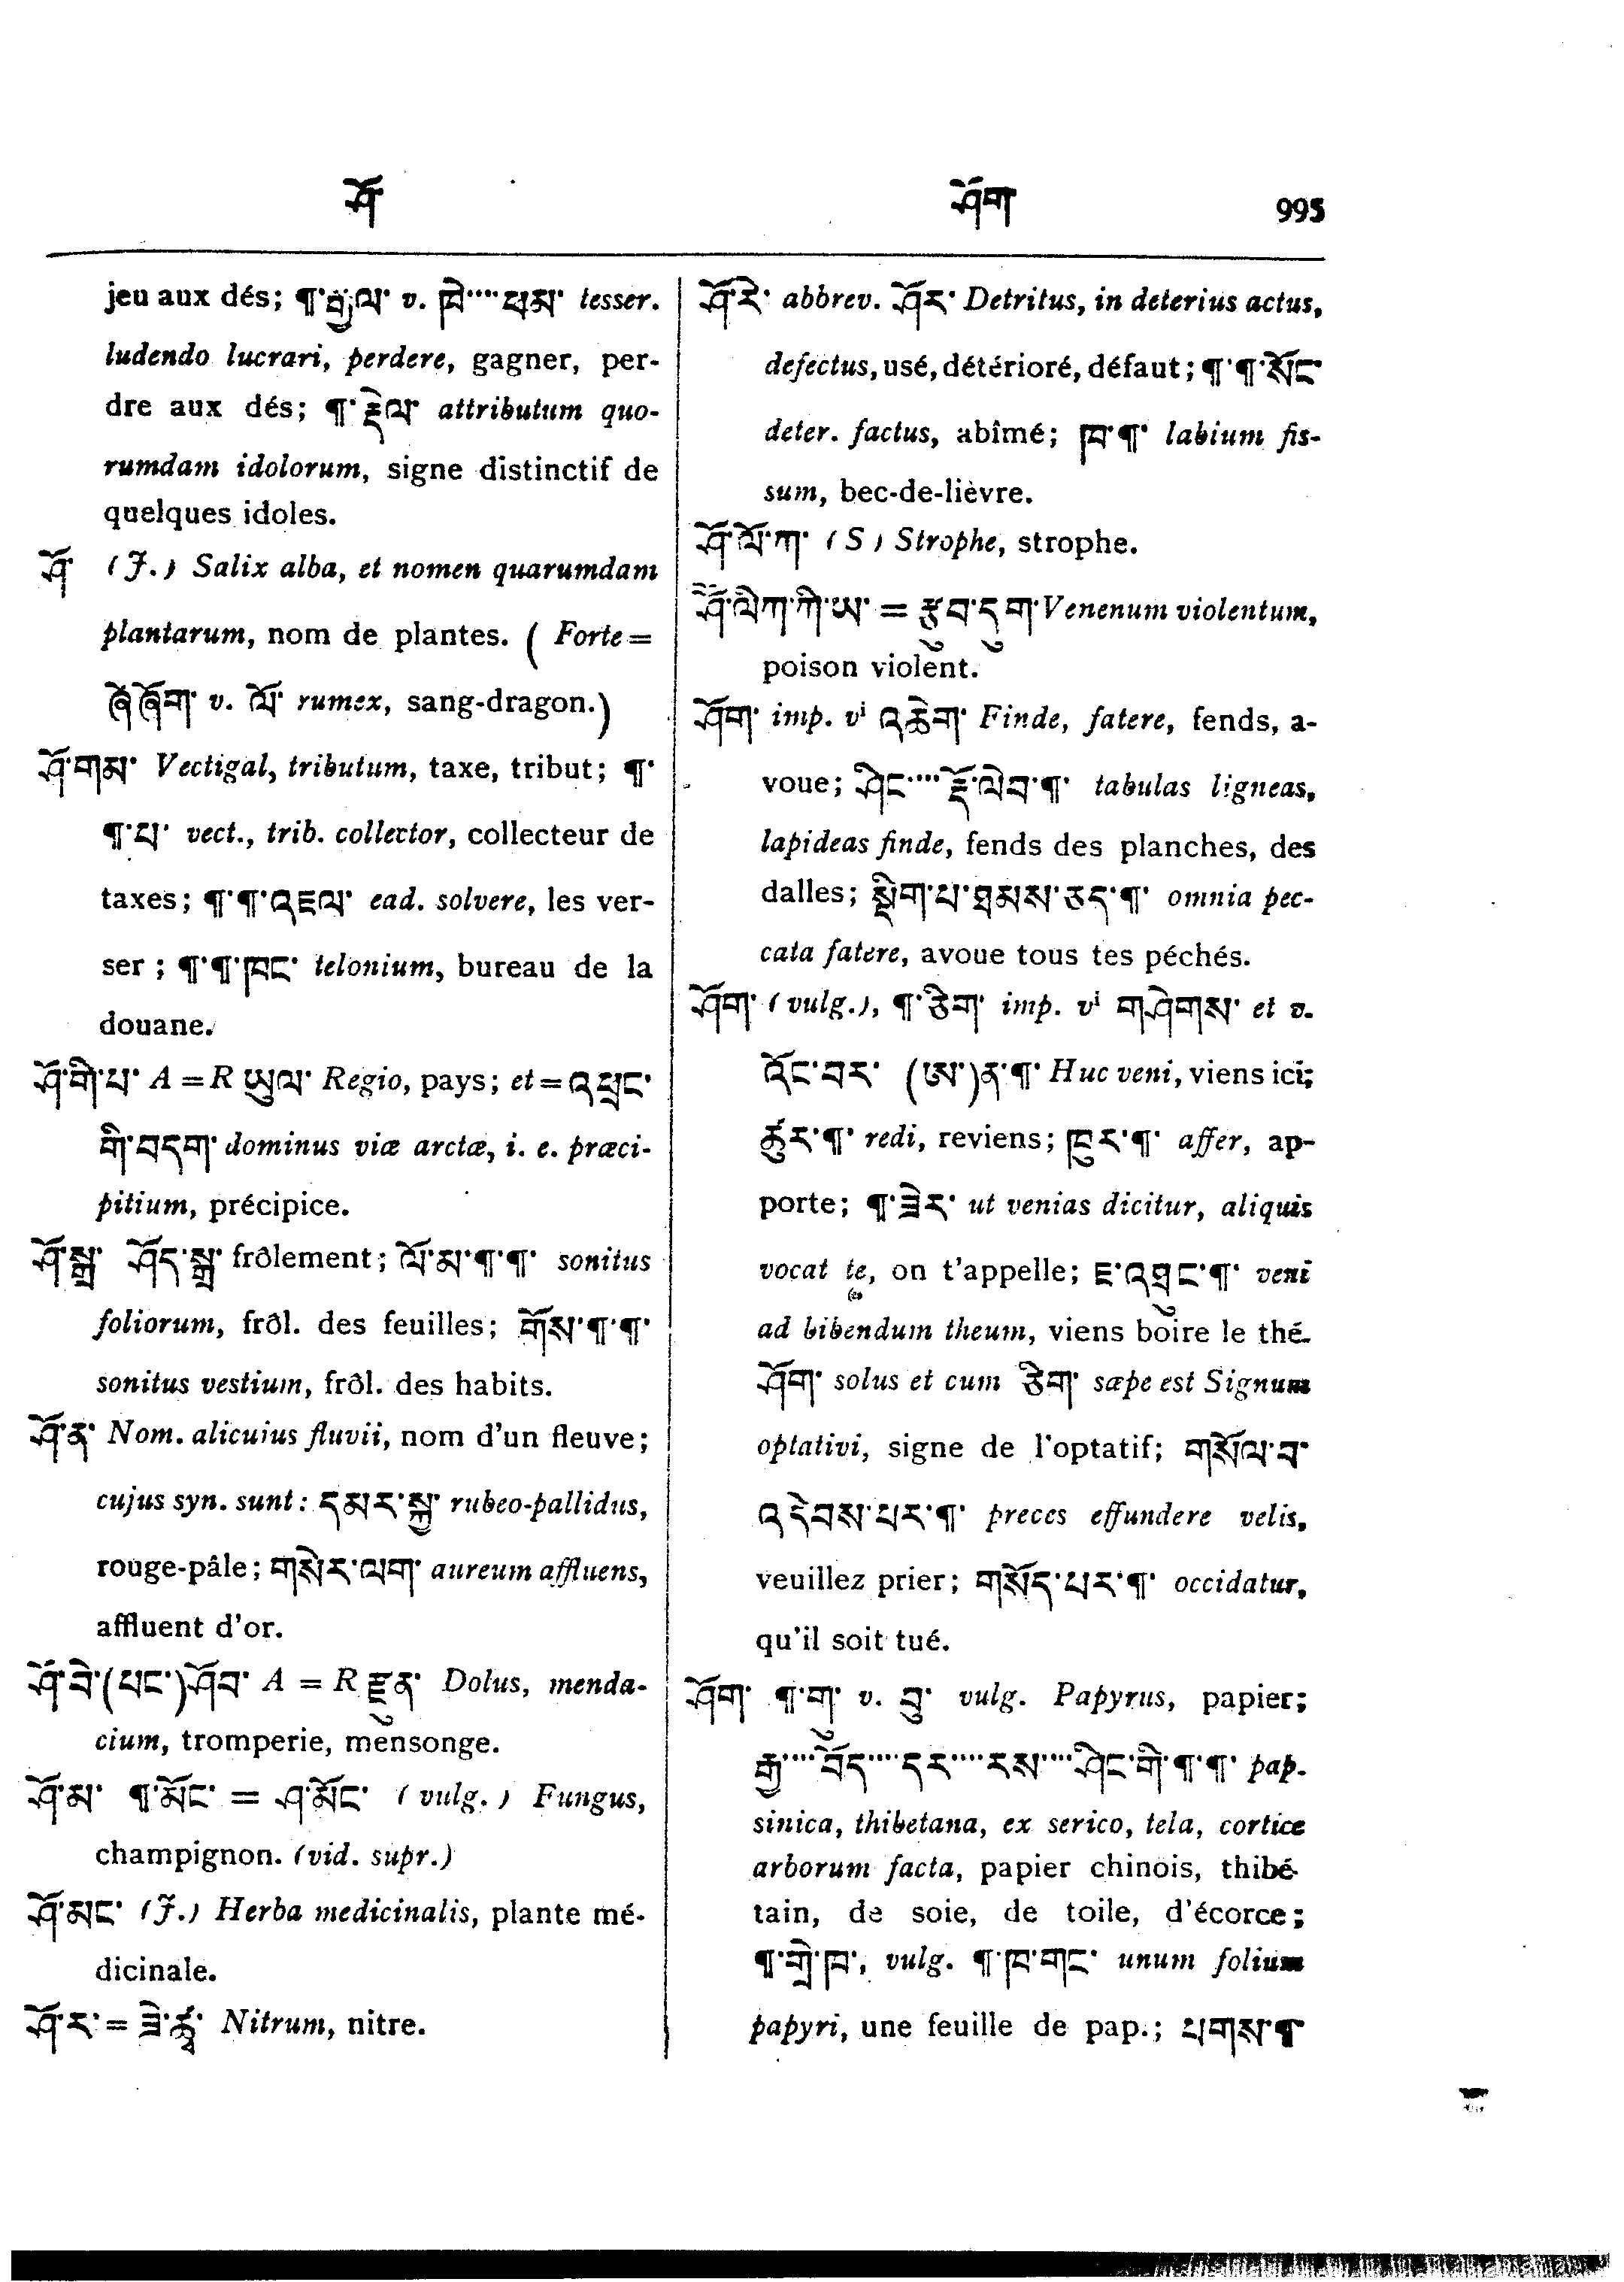 ཤོ ཤོག 995
jeu aux dés; ¶་རྒྱལ་ v. ཁེ་···་ཕམ་ tesser.
ludendo lucrari, perdere, gagner, per-
dre aux dés; ¶་རྡེལ་ attributum quo-
rumdam idolorum, signe distinctif de
quelques idoles.
ཤོ་ (J.) Salix alba, et nomen quarumdam
plantarum, nom de plantes. ( Forte =
ཞོ་ཤོག་ v. ལོ་ rumex, sang-dragon.)
ཤོ་གམ་ Vectigal, tributum, taxe, tribut; ¶་
¶་པ་ vect., trib. collector, collecteur de
taxes; ¶་¶་འཇལ་ ead. solvere, les ver-
ser ; ¶་¶་ཁང་ telonium, bureau de la
douane.
ཤོ་གི་པ་ A = R ཡུལ་ Regio, pays; et = འཕྲང་
གི་བདག་ dominus viæ arctæ, i. e. præci-
pitium, précipice.
ཤོ་སྒྲ་ ཤོད་སྒྲ་ frôlement; ལོ་མ་¶་¶་ sonitus
foliorum, frôl. des feuilles; གོས་¶་¶་
sonitus vestium, frôl. des habits.
ཤོ་ན་ Nom. alicuius fluvii, nom d'un fleuve;
cujus syn. sunt: དམར་སྐྱ་ rubeo-pallidus,
rouge-pâle; གསེར་ལག་ aureum affluens,
affluent d'or.
ཤོ་བེ་(པང་)ཤོབ་ A = R རྫུན་ Dolus, menda-
cium, tromperie, mensonge.
ཤོ་མ་ ¶་མོང་ = ཤ་མོང་ (vulg.) Fungus,
champignon. (vid. supr.)
ཤོ་མང་ (J.) Herba medicinalis, plante mé-
dicinale.
ཤོ་ར་ = ཟེ་ཚྭ་ Nitrum, nitre.
ཤོ་རེ་ abbrev. ཤོར་ Detritus, in deterius actus,
defectus, usé, détérioré, défaut; ¶་¶་སོང་
deter. factus, abîmé; ཁ་¶་ labium fis-
sum, bec-de-lièvre.
ཤོ་ལོ་ཀ་ (S) Strophe, strophe.
ཤཽ་ལིཀ་ཀི་ཡ་ = རྩུབ་དུག་ Venenum violentum,
poison violent.
ཤོག་ imp. vⁱ འཆེག་ Finde, fatere, fends, a-
voue; ཤིང་···་རྡོ་ལེབ་¶་ tabulas ligneas,
lapideas finde, fends des planches, des
dalles; སྡིག་པ་ཐམས་ཅད་¶་ omnia pec-
cata fatere, avoue tous tes péchés.
ཤོག་ (vulg.), ¶་ཅིག་ imp. vⁱ གཤེགས་ et v.
འོང་བར་ (ཨ་)ན་¶་ Huc veni, viens ici;
ཚུར་¶་ redi, reviens; ཁུར་¶་ affer, ap-
porte; ¶་ཟེར་ ut venias dicitur, aliquis
vocat te, on t'appelle; ཇ་འཐུང་¶་ veni
ad bibendum theum, viens boire le thé.
ཤོག་ solus et cum ཅིག་ sæpe est Signum
optativi, signe de l'optatif; གསོལ་བ་
འདེབས་པར་¶་ preces effundere velis,
veuillez prier; གསོད་པར་¶་ occidatur,
qu'il soit tué.
ཤོག་ ¶་གུ་ v. བུ་ vulg. Papyrus, papier;
རྒྱ་···་བོད་···་དར་···་རས་···་ཤིང་གི་¶་¶་ pap.
sinica, thibetana, ex serico, tela, cortice
arborum facta, papier chinois, thibé-
tain, de soie, de toile, d'écorce;
¶་གྲེ་ཁ་, vulg. ¶་ཁ་གང་ unum folium
papyri, une feuille de pap.; པགས་¶་